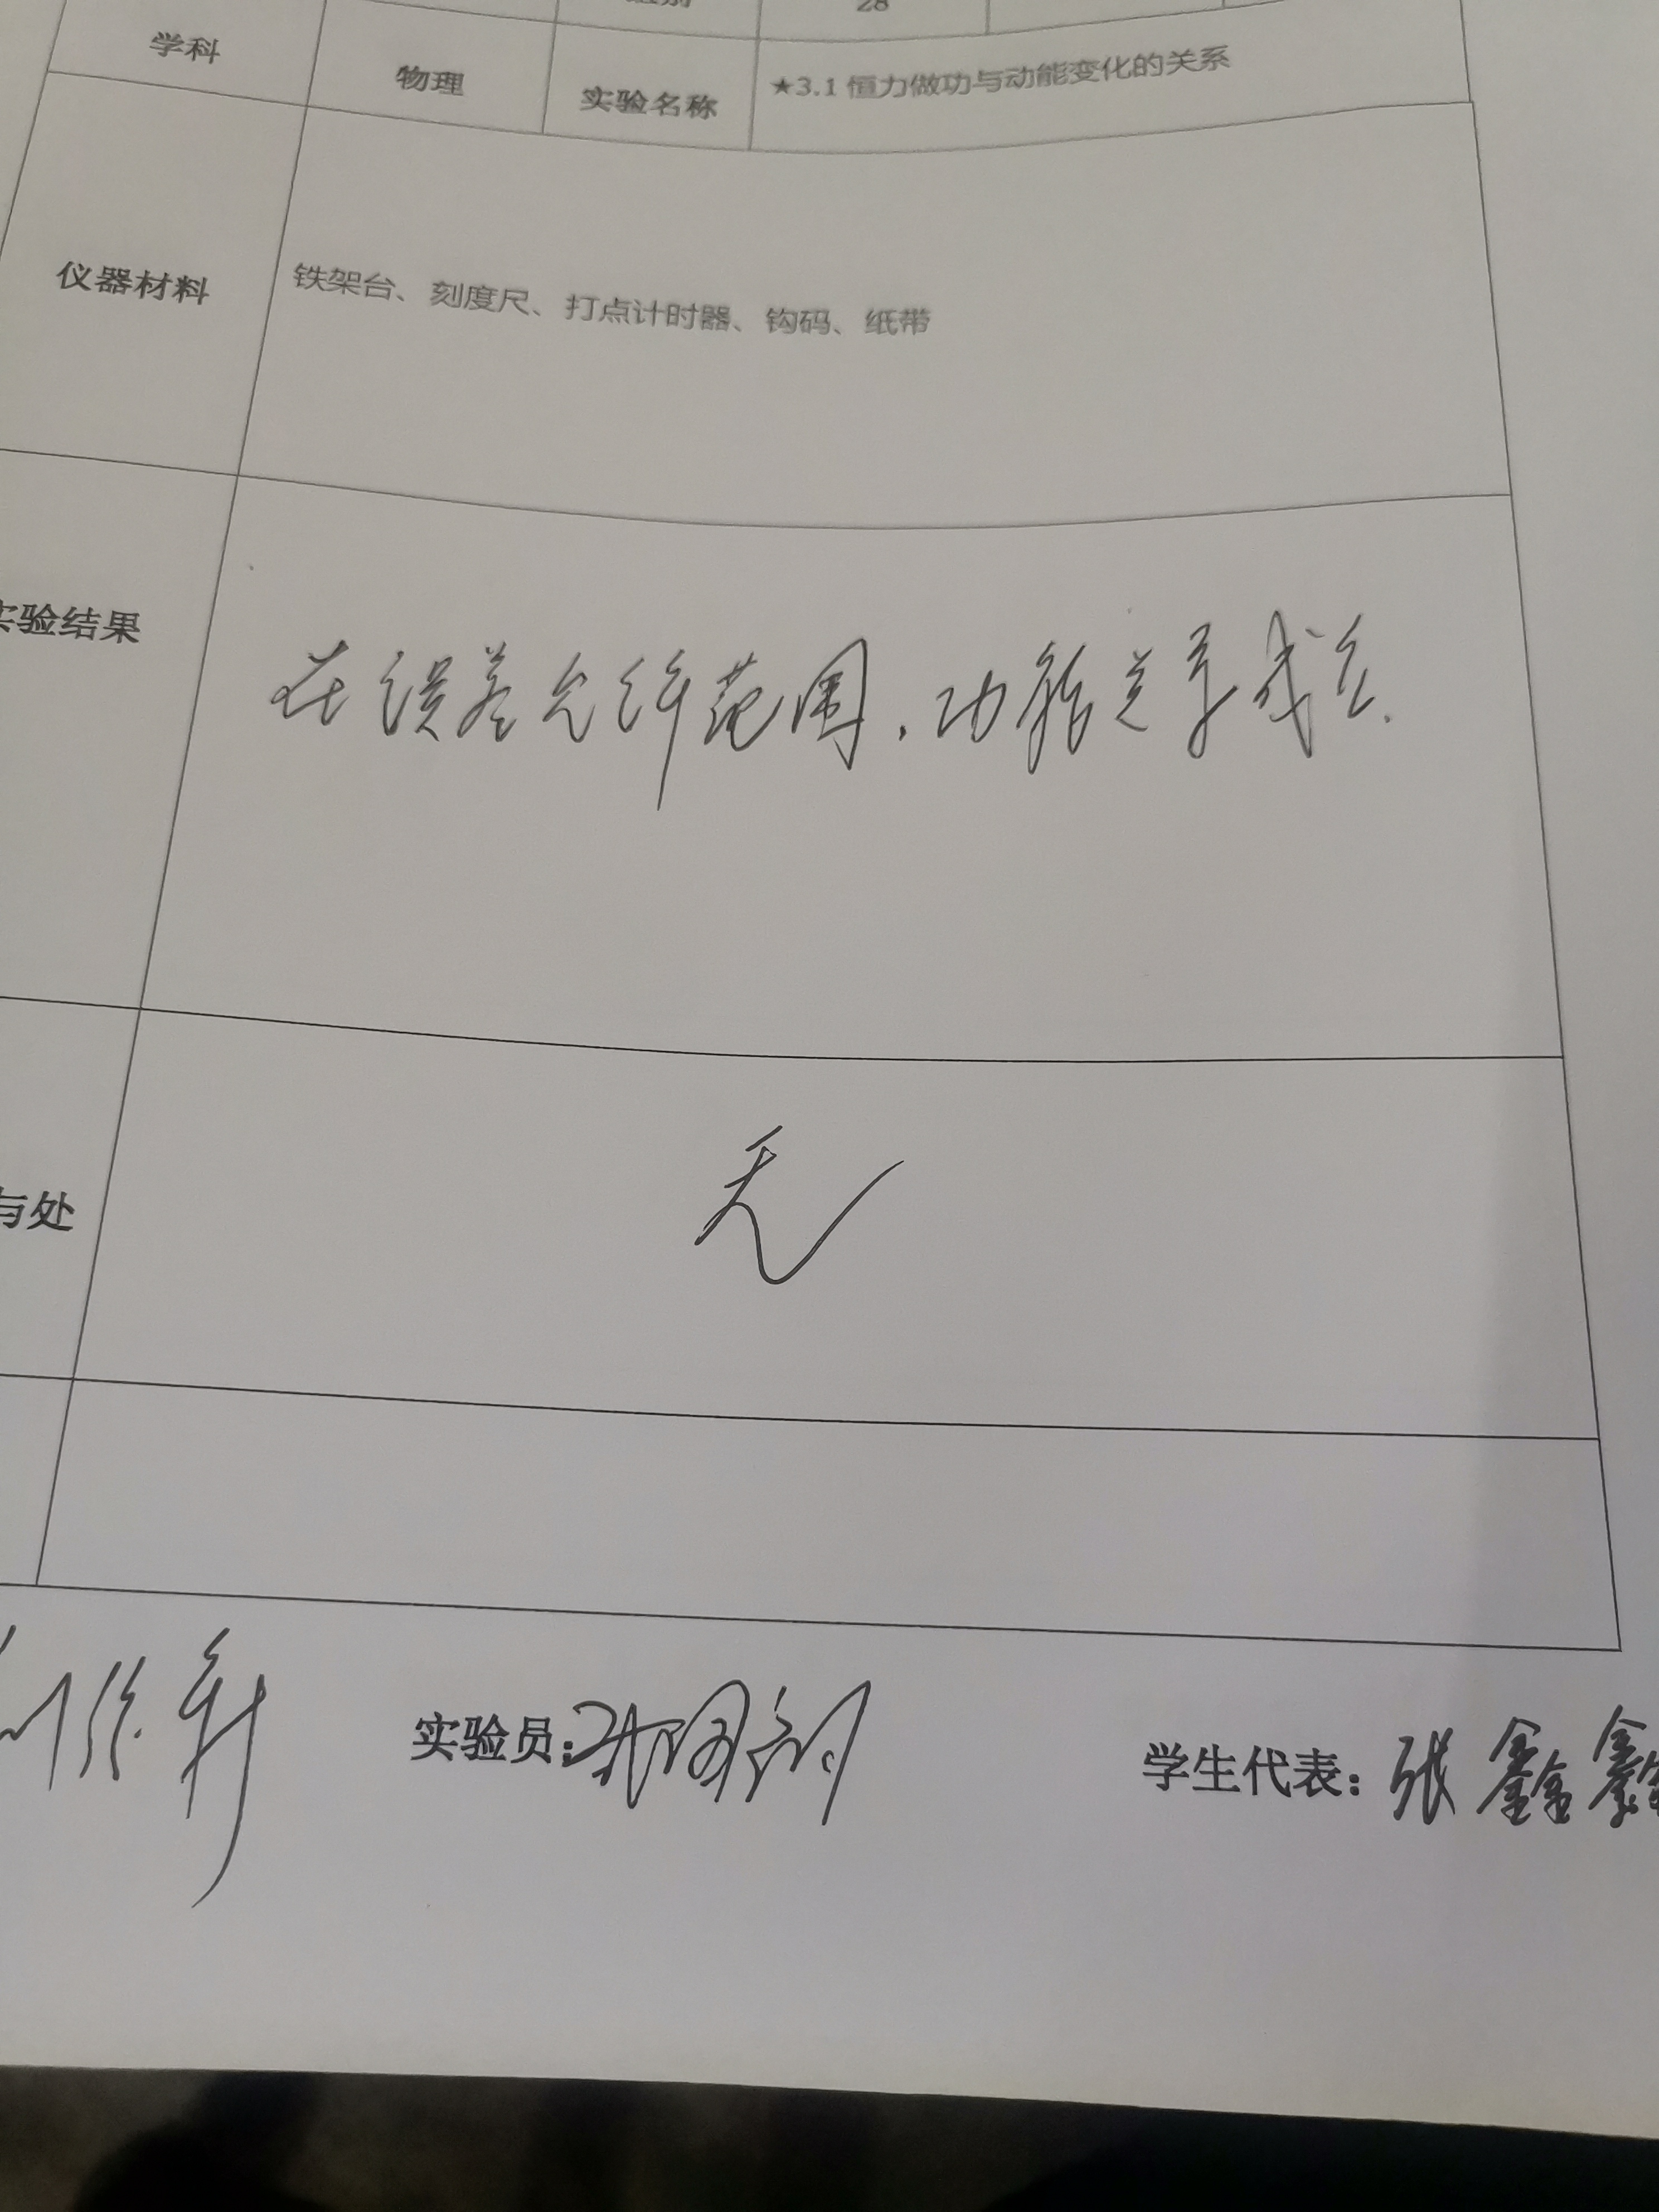 组别 28
学科 物理 实验名称 ★3.1 恒力做功与动能变化的关系
仪器材料 铁架台、刻度尺、打点计时器、钩码、纸带
实验结果 在误差允许范围,功能关系成立.
与处 无
实验员: 学生代表:张鑫鑫